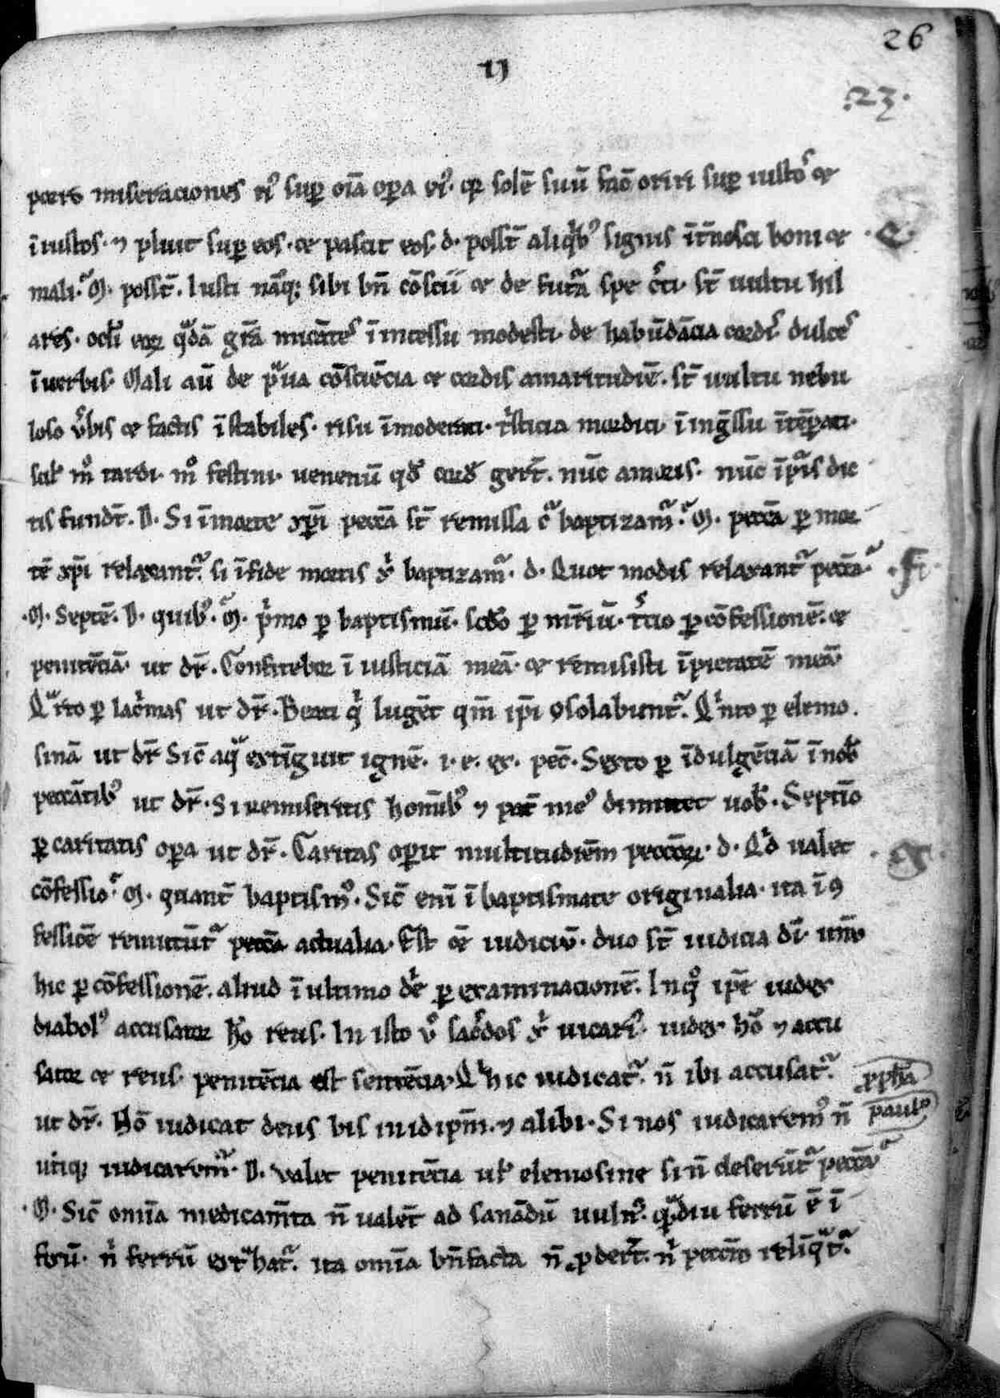 26
IJ
.23.
miseraciones eiꝰ suꝑ oīa oꝑa eiꝰ. solē suū oriri suꝑ iustos et
īiustos. ⁊ pluit suꝑ eos. et pascit eos. d. posst̄ aliqͥbꝰ signis it̄nosci boni et
mali. M. posst̄. Iusti nāqꝫ sibi bn̄ cōscii et de futᷓa spe c̓ti. st̄ uultu hil
ares. oculi eoꝝ qͣdā gr̄a micātes ī incessu modesti. de habūdācia cordis dulces
ī uerbis. Mali aū de pͣua cōsciēcia et cordis amaritudīe. st̄ uultu nebu
loso u̓bis et factis īstabiles. risu īmoderati. tͥsticia mordici. ī ingͤssu ītēꝑati.
mͦ tardi. mͦ festini. uenenū qd̓ corde gerūt. nūc amoris. nūc dic
tis fundt̄. D. Si ī morte xp̄i peccā st̄ remissa cͬ baptizamͬ. M. peccā ꝑ mor
tē xp̄i relaxantͬ. si ī fide mortis xͥ baptizamͬ. d. Quot modis relaxantͬ peccā.
M. Septē. D. quibꝰ. M. pͥmo ꝑ baptismū. scd̓o ꝑ mr̄iū. t̓cio ꝑ cōfessionē. et
penitēciā. ut dr̄. Confitebor ī iusticiā meā. et remisisti īpietatē meā.
Qͣrto ꝑ lacͥmas ut dr̄. Beati qͥ lugēt qm̄ ip̄i ꝯsolabuntͬ. Qͥnto ꝑ elemo.
sinā ut dr̄ Sic̄ aqͣ extīguit ignē. i. e. ex. pec̄. Sexto ꝑ īdulgēciā ī nob̓
peccātibꝰ ut dr̄. Si remiseritis homībꝰ ⁊ pat̄ meꝰ dimittet uob̓. Septīo
ꝑ caritatis oꝑa ut dr̄. Caritas oꝑit multitudīem peccoꝝ. d. Qͥd ualet
cōfessio. M. quant̄ baptismꝰ. Sic̄ enī ī baptismate originalia. ita ī ꝯ
fessiōe remittūtͬ peccā actualia. Est et̄ iudiciū. duo st̄ iudicia dī. unū
hic ꝑ cōfessionē. aliud ī ultimo die ꝑ examinacionē. In qͦ ip̄e iudex
diabolꝰ accusator hō reus. In isto u̓ sac̓dos xͥ uicariꝰ. iudex hō ⁊ accu
sator et reus. penitēcia est sentēcia. Qͥ hic iudicatͬ. n̄ ibi accusatͬ.
ut dr̄. Nō iudicat deus bis in idip̄m. ⁊ alibi. Si nos iudicaremꝰ n̄
utiqꝫ iudicaremͬ. D. valet penitēcia ul̓ elemosine si n̄ deserūtͬ peccā.
M. Sic̄ omīa medicam̄ta n̄ ualēt ad sanādū uulnꝰ. qͣdiu ferrū ē ī
fixū. nͥ ferrū extͣhatͬ. ita omīa bn̄facta n̄ ꝓdert̄. nͥ peccm̄ relīqͣtͬ.
e.
f.
g.
ꝓph̄a
paulꝰ